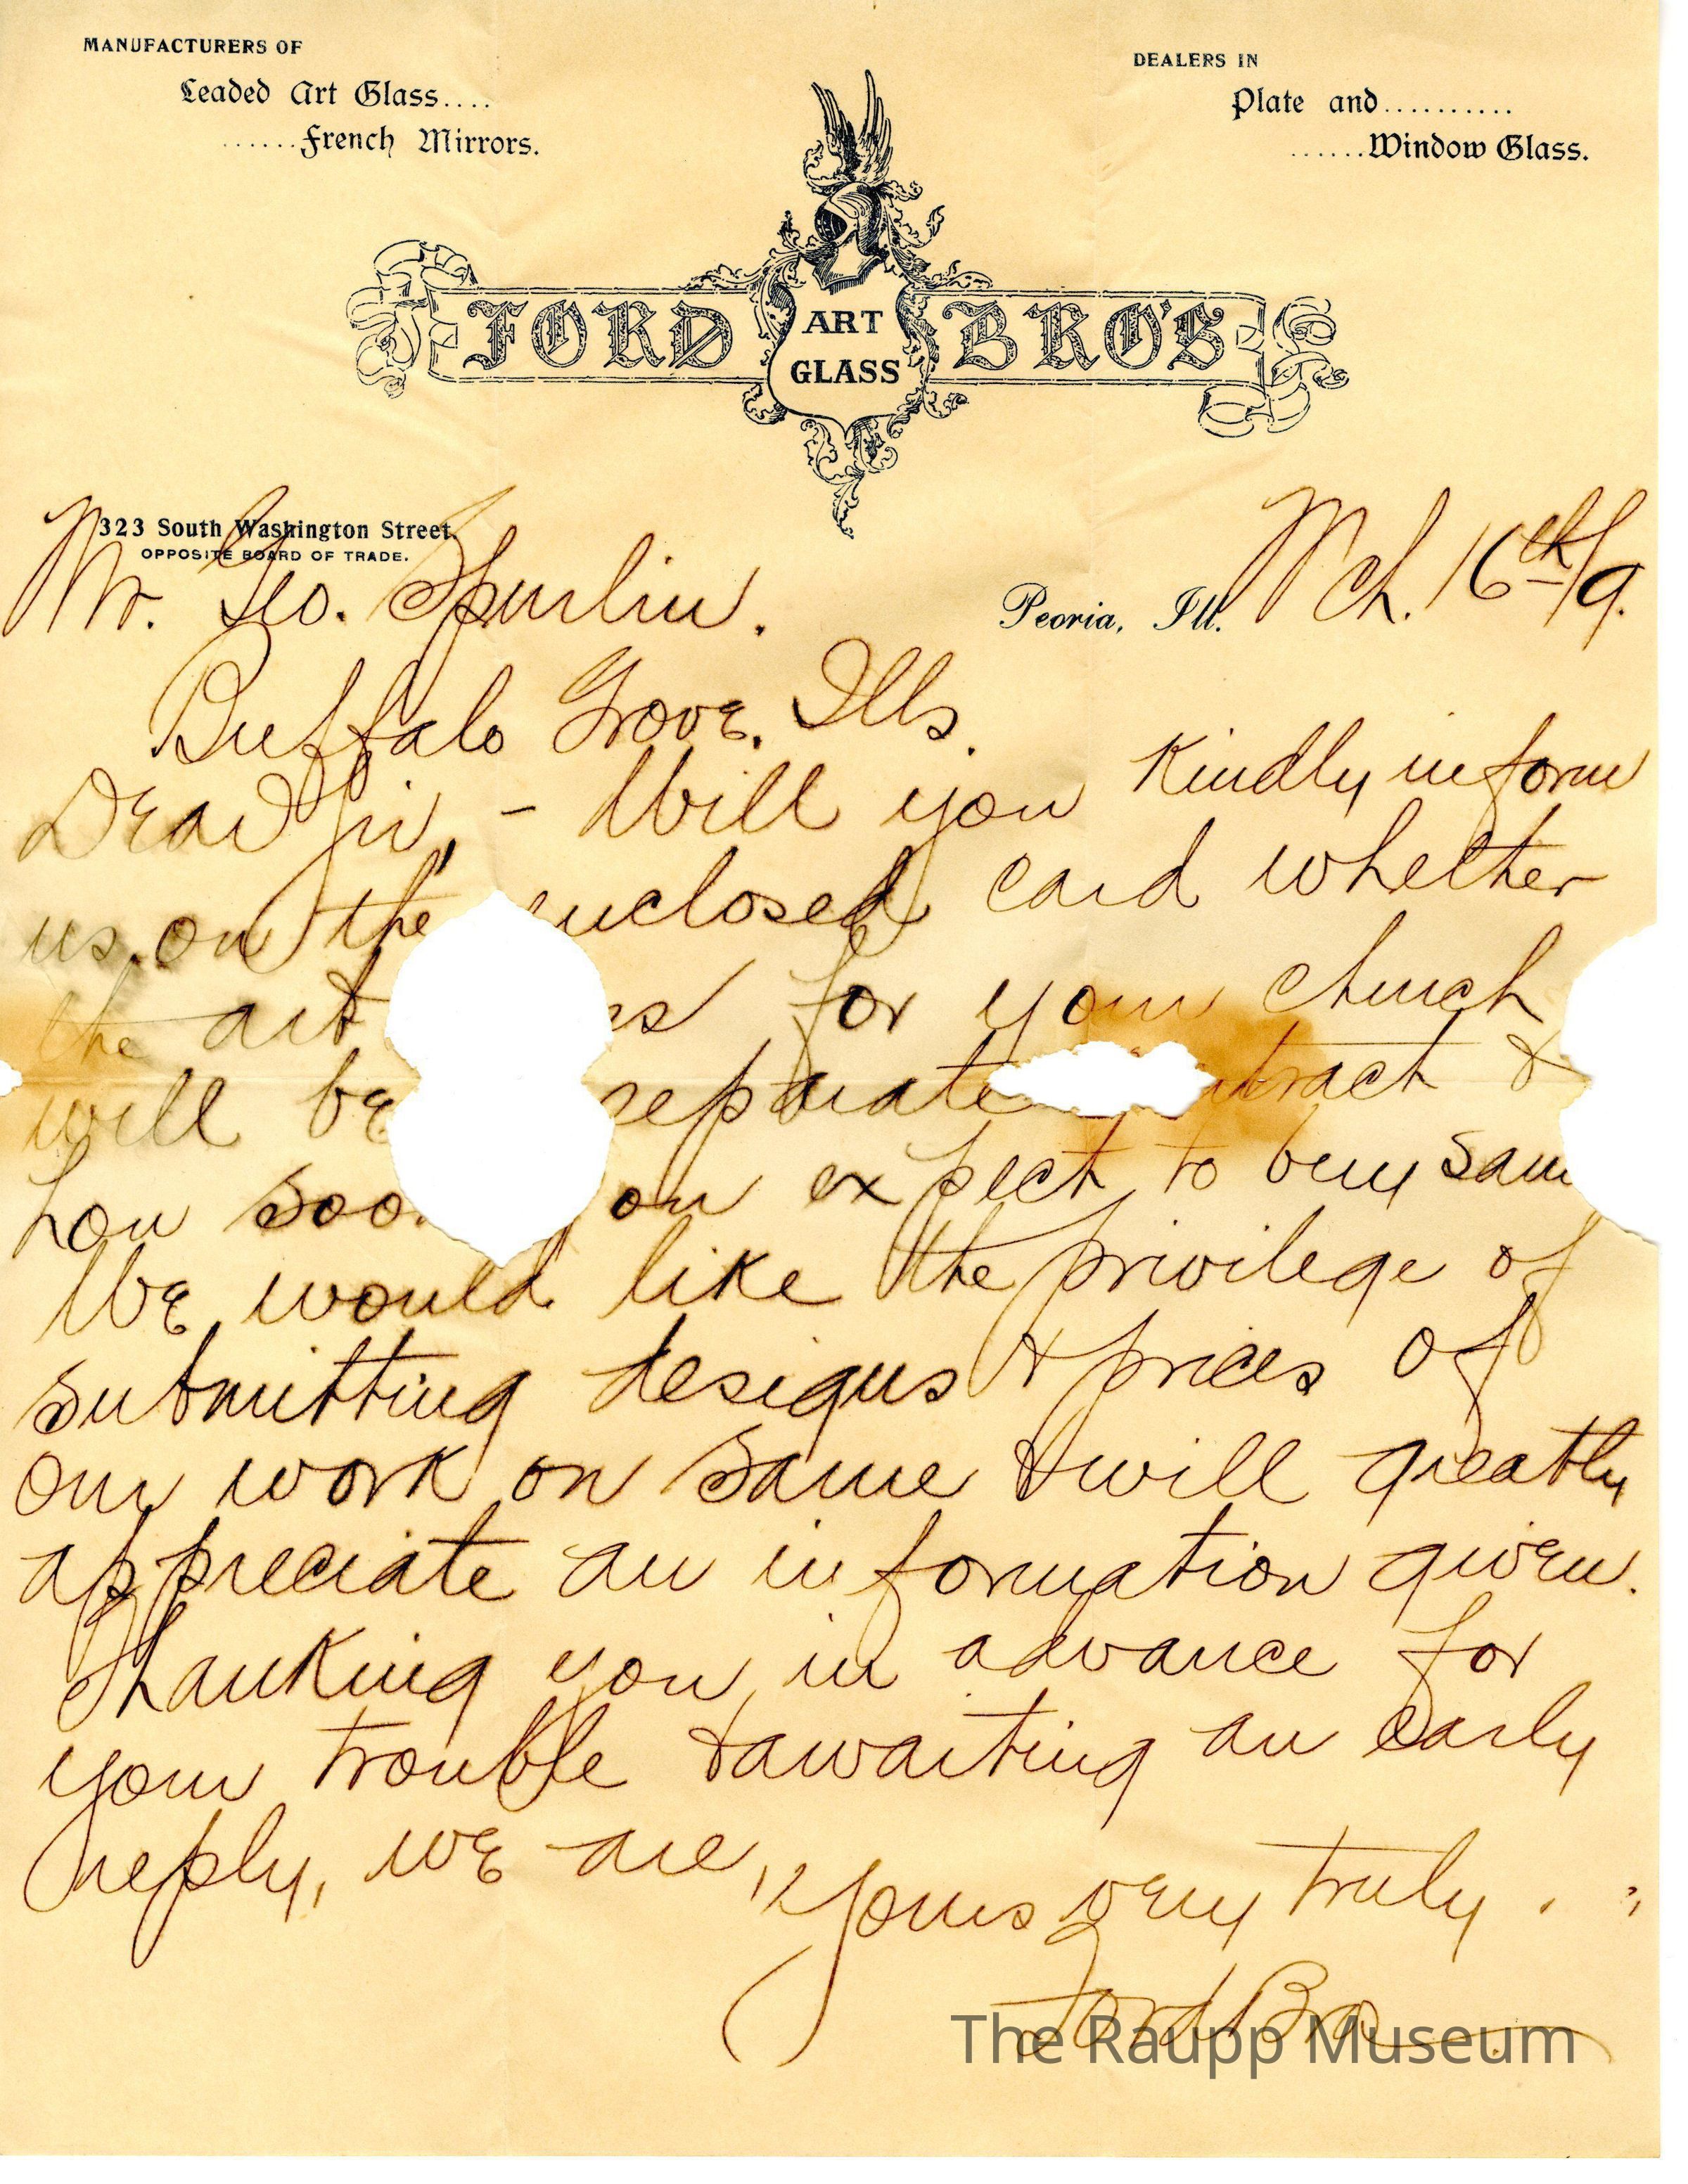 MANUFACTURERS OF
Leaded Art Glass....
......French Mirrors.
DEALERS IN
Plate and..........
......Window Glass.
FORD ART GLASS BRO'S
323 South Washington Street,
OPPOSITE BOARD OF TRADE.
Peoria, Ill. Mch. 16th/9.
Mr. Geo. Spurlin.
Buffalo Grove, Ills.
Dear Sir, - Will you kindly inform
us on the enclosed card whether
the art for your church
will be separate &
how you expect to buy
We would like the privilege of
submitting designs & prices of
our work on same & will greatly
appreciate an information given.
Thanking you in advance for
your trouble & awaiting an early
reply, we are,
Yours very truly.
Ford Bros
The Raupp Museum